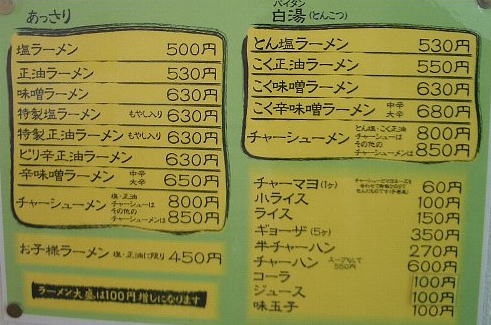 あっさり
塩ラーメン 500円
正油ラーメン 530円
味噌ラーメン 630円
特製塩ラーメン もやし入り 630円
特製正油ラーメン もやし入り 630円
ピリ辛正油ラーメン 630円
辛味噌ラーメン 中辛 大辛 650円
チャーシューメン 塩・正油 チャーシューは 800円
その他の チャーシューメンは 850円
お子様ラーメン 塩・正油に限り 450円
ラーメン大盛は100円増しになります
パイタン
白湯(とんこつ)
とん塩ラーメン 530円
こく正油ラーメン 550円
こく味噌ラーメン 630円
こく辛味噌ラーメン 中辛 大辛 680円
チャーシューメン とん塩・こく正油 チャーシューは 800円
その他の チャーシューメンは 850円
チャーマヨ(1ヶ) 60円
小ライス 100円
ライス 150円
ギョーザ(5ヶ) 350円
半チャーハン 270円
チャーハン 550円 600円
コーラ 100円
ジュース 100円
味玉子 100円